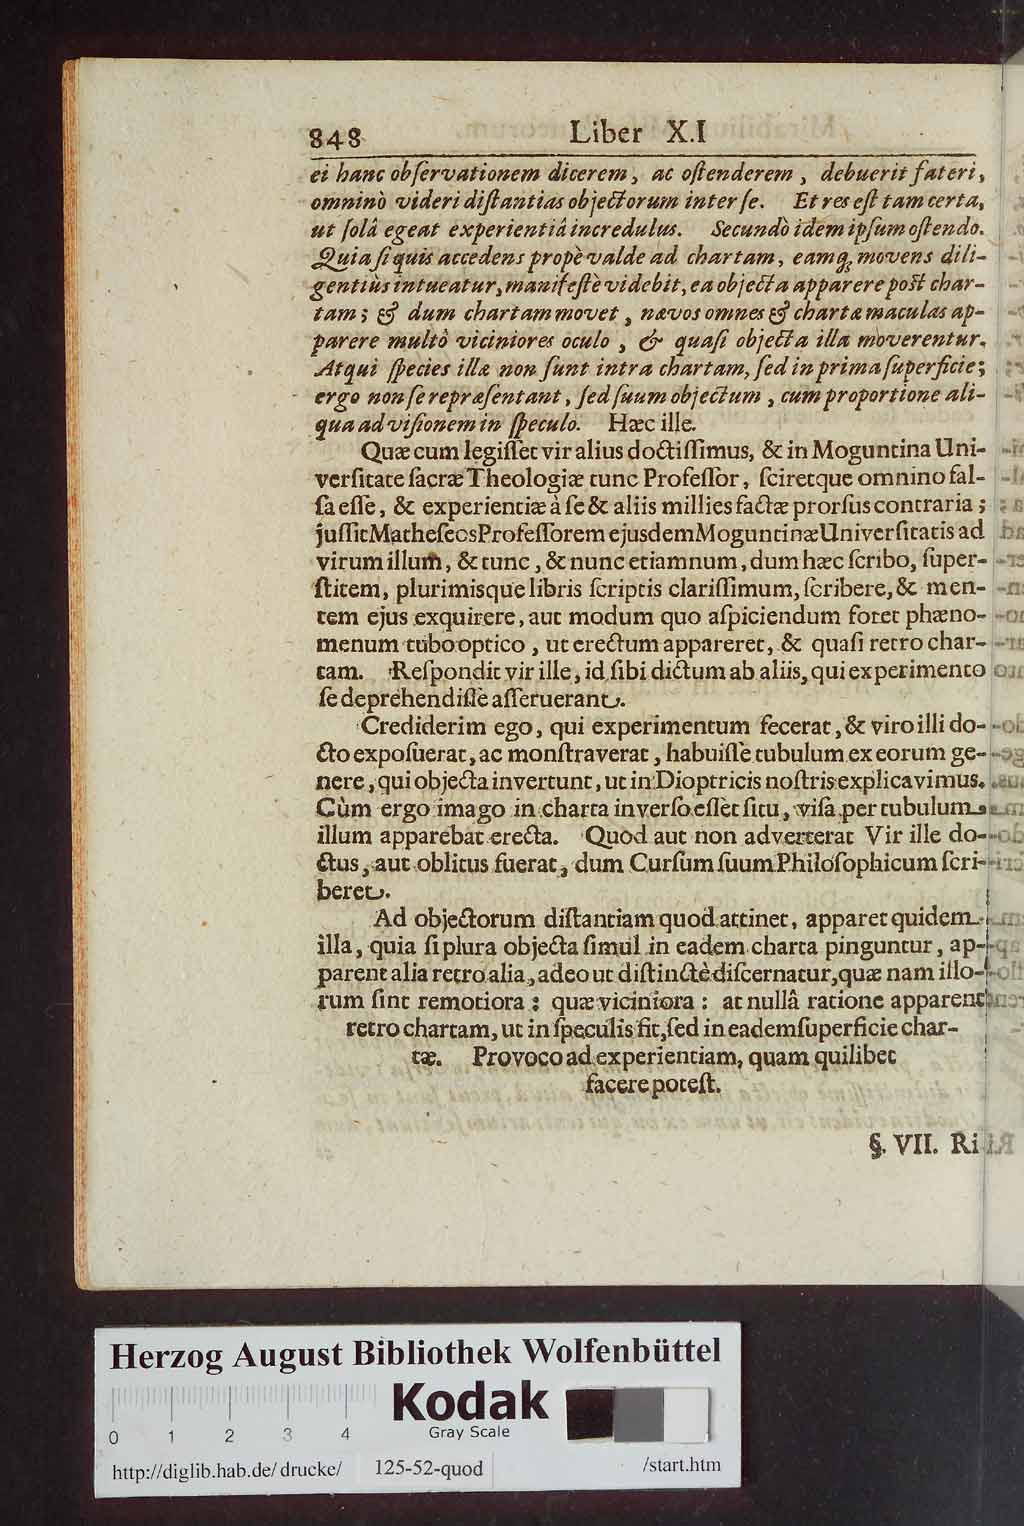 848 Liber X.I
ei hanc obſervationem dicerem, ac oſtenderem, debuerit fateri,
omninò videri diſtantias objectorum inter ſe. Et res eſt tam certa,
ut ſolâ egeat experientiâ incredulus. Secundò idem ipſum oſtendo.
Quia ſi quis accedens propè valde ad chartam, eamq; movens dili-
gentiùs intueatur, manifeſtè videbit, ea objecta apparere poſt char-
tam; & dum chartam movet, nævos omnes & chartæ maculas ap-
parere multò viciniores oculo, & quaſi objecta illa moverentur.
Atqui ſpecies illæ non ſunt intra chartam, ſed in prima ſuperficie;
ergo non ſe repræſentant, ſed ſuum objectum, cum proportione ali-
qua ad viſionem in ſpeculo. Hæc ille.
Quæ cum legiſſet vir alius doctiſſimus, & in Moguntina Uni-
verſitate ſacræ Theologiæ tunc Profeſſor, ſciretque omnino fal-
ſa eſſe, & experientiæ à ſe & aliis millies factæ prorſus contraria;
juſſit Matheſeos Profeſſorem ejusdem Moguntinæ Univerſitatis ad
virum illum, & tunc, & nunc etiamnum, dum hæc ſcribo, ſuper-
ſtitem, plurimisque libris ſcriptis clariſſimum, ſcribere, & men-
tem ejus exquirere, aut modum quo aſpiciendum foret phæno-
menum tubo optico, ut erectum appareret, & quaſi retro char-
tam. Reſpondit vir ille, id ſibi dictum ab aliis, qui experimento
ſe deprehendiſſe aſſeruerant.
Crediderim ego, qui experimentum fecerat, & viro illi do-
cto expoſuerat, ac monſtraverat, habuiſſe tubulum ex eorum ge-
nere, qui objecta invertunt, ut in Dioptricis noſtris explicavimus.
Cùm ergo imago in charta inverſo eſſet ſitu, viſa per tubulum
illum apparebat erecta. Quod aut non adverterat Vir ille do-
ctus, aut oblitus fuerat, dum Curſum ſuum Philoſophicum ſcri-
beret.
Ad objectorum diſtantiam quod attinet, apparet quidem
illa, quia ſi plura objecta ſimul in eadem charta pinguntur, ap-
parent alia retro alia, adeo ut diſtinctè diſcernatur, quæ nam illo-
rum ſint remotiora: quæ viciniora: at nullâ ratione apparent
retro chartam, ut in ſpeculis fit, ſed in eadem ſuperficie char-
tæ. Provoco ad experientiam, quam quilibet
facere poteſt.
§. VII. Ri
Herzog August Bibliothek Wolfenbüttel
Kodak
Gray Scale
0 1 2 3 4
http://diglib.hab.de/drucke/ 125-52-quod /start.htm